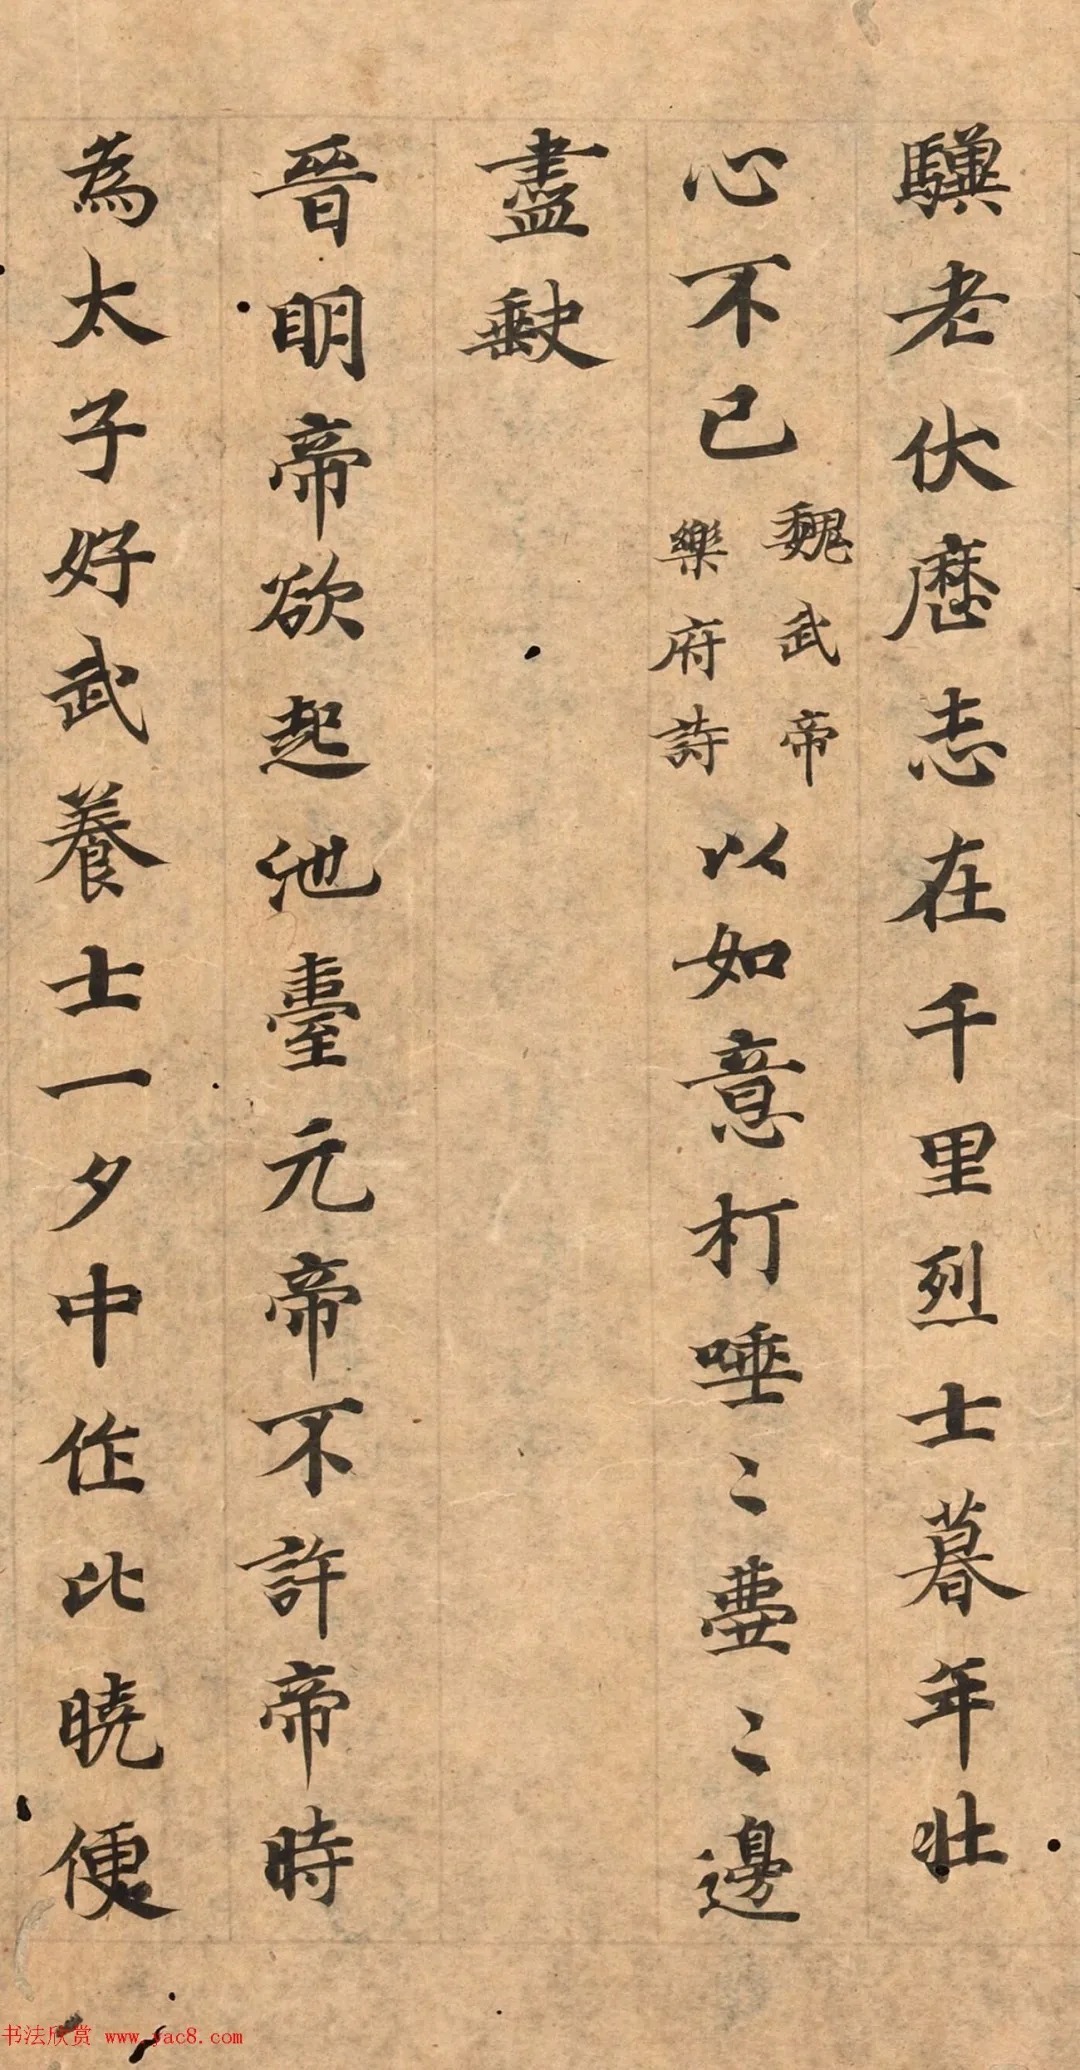 驥老伏曆志在千里烈士暮年壯
心不已魏武帝樂府詩以如意打唾〻壺〻邊
盡缺
晉明帝欲起池臺元帝不許帝時
為太子好武養士一夕中作比曉便
书法欣赏 www.yac8.com